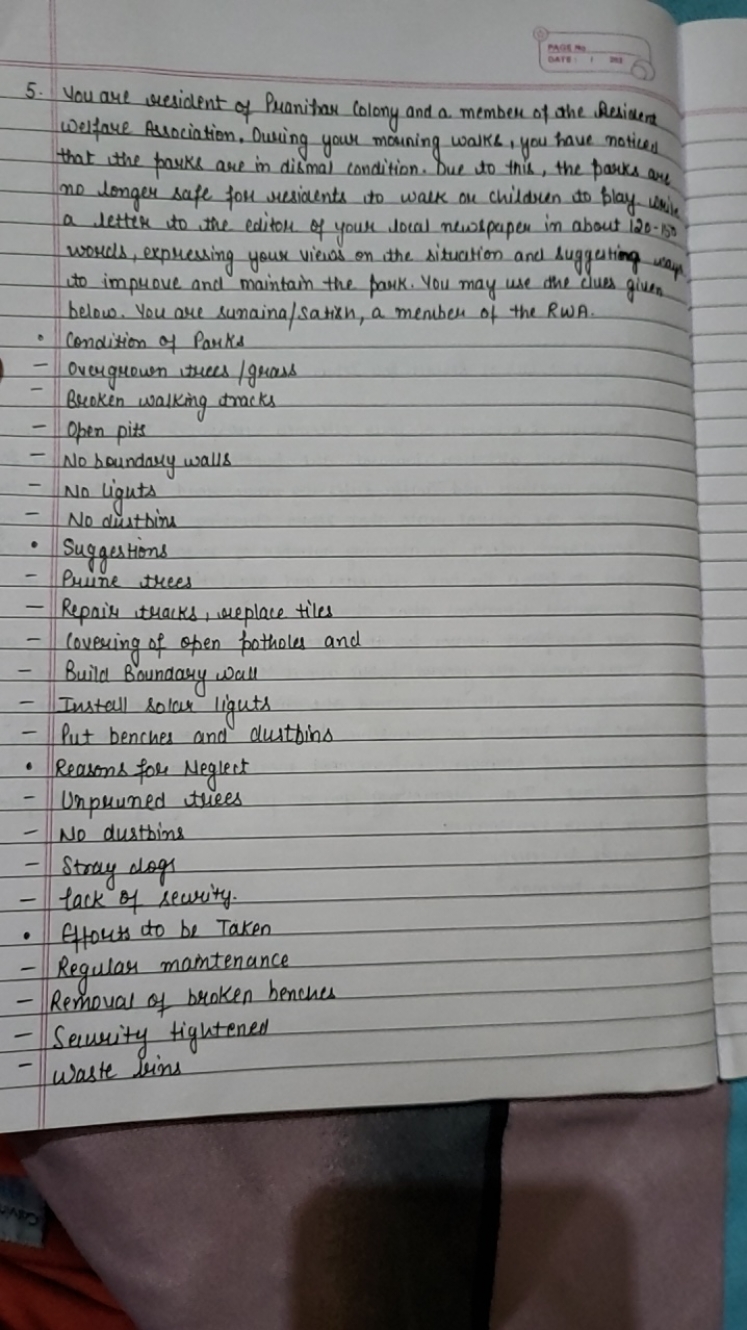 PAGE No
DATE :
5. You are resident of Pranihar Colony and a member of the Resident
Welfare Association. During your morning walks, you have noticed
that the parks are in dismal condition. Due to this, the parks are
no longer safe for residents to walk or children to play. Write
a letter to the editor of your local newspaper in about 120-150
words, expressing your views on the situation and suggesting ways
to improve and maintain the park. You may use the clues given
below. You are sunaina/Satish, a member of the RWA.
• Condition of Parks
- Overgrown trees/grass
- Broken walking tracks
- Open pits
- No boundary walls
- No lights
- No dustbins
• Suggestions
- Prune trees
- Repair tracks, replace tiles
- Covering of open potholes and
- Build Boundary wall
- Install solar lights
- Put benches and dustbins
• Reasons for Neglect
- Unpruned trees
- No dustbins
- Stray dogs
- lack of security.
• Efforts to be Taken
- Regular maintenance
- Removal of broken benches
- Security tightened
- Waste bins